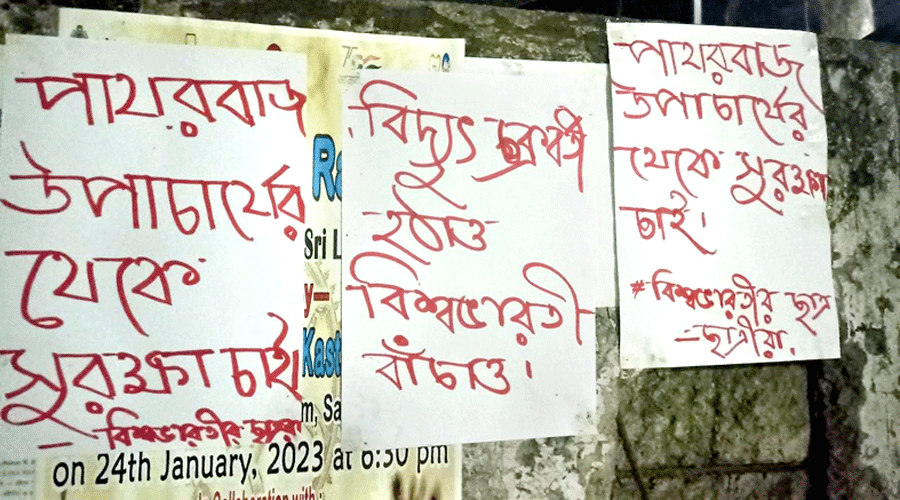 পাথরবাজ
উপাচার্যের
থেকে
সুরক্ষা চাই
— বিশ্বভারতীর ছাত্ররা
বিদ্যুৎ চক্রবর্তী
হঠাও
বিশ্বভারতী
বাঁচাও।
পাথরবাজ
উপাচার্যের
থেকে সুরক্ষা
চাই।
* বিশ্বভারতীর ছাত্র
—ছাত্রীরা.
Sri L
y—
Kast
m, Sa
on 24th January, 2023 at 6:30 pm
Collaboration with :